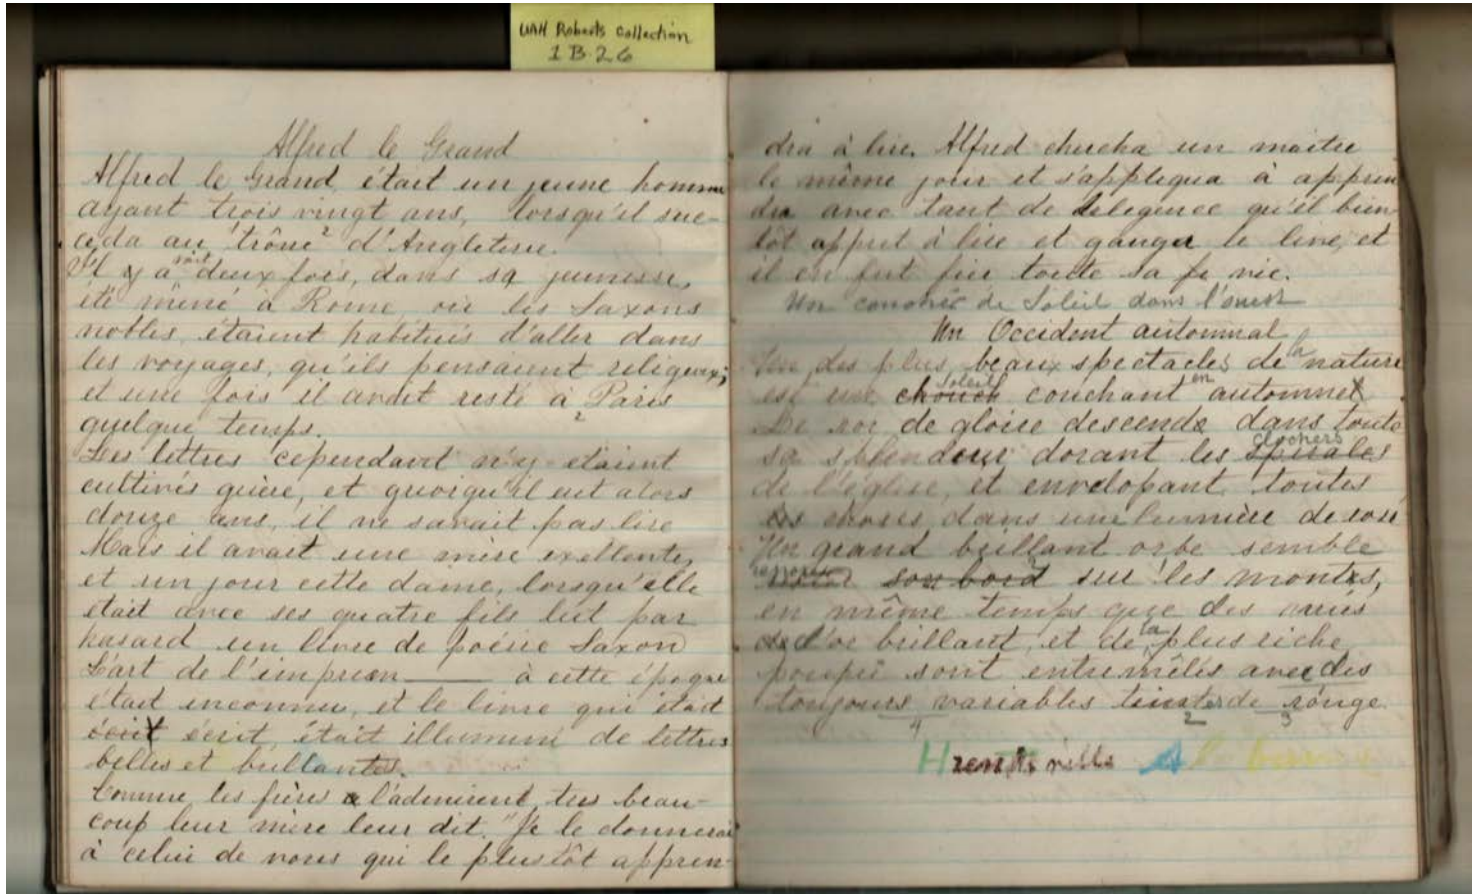 UAH Roberts Collection
1B26
Alfred le Grand
Alfred le Grand était un jeune homme
ayant trois vingt ans, lorsqu'il suc-
ceda au trône 2 d'Angleterre.
Il y a deux fois, dans sa jeunesse,
été mené à Rome, où les Saxons
nobles étaient habitués d'aller dans
les voyages, qu'ils pensaient religeux;
et une fois il avait resté à Paris
2
quelque temps.
Les lettres cependant n'y étaient
cultivés guère, et quoiqu'il eut alors
douze ans, il ne savait pas lire
Mais il avait une mère exellente,
et un jour cette dame, lorsqu'elle
était avec ses quatre fils lut par
hasard un livre de poésie Saxon
L'art de l'imprem——— à cette époque
était inconnu, et le livre qui était
écrit écrit était illuminé de lettres
belles et brillantes.
Comme les frères l'admirent, tres beau-
coup leur mère leur dit. "Je le donnerai
à celui de vous qui le plustôt appren-
dra à lire. Alfred chercha un maitre
le même jour et s'appliqua à appren
dre avec tant de deligence qu'il bien
tôt apprit à lire et gangea le livre, et
il en fut fier toute sa fe vie.
Un couché de Soleil dans l'ouest
Un Occident automnal
Un des plus beaux spectacles de la nature
est un chouch soleil couchant en automne
Le roi de gloire descends dans toute
sa splendour dorant les spirales clochers
de l'église, et envelopant toutes
les choses dans une lumière de rose
Un grand brillant orbe semble
son bord sur les monts,
en même temps que des
de l'or brillant, et de la plus riche
poupre sont entremêlés avec des
toujours variables teintes de rouge.
4 2 3
Huntsville Alabama